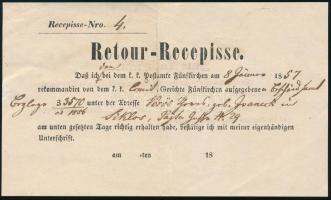 Recepisse-Nro. 4.
Retour-Recepisse.
Daß ich bei dem k. k. Postamte Fünfkirchen am 8 Jänner 1857
rekommandirt von dem k. k. Comit. Gerichte Fünfkirchen aufgegebene
3 3570 unter der Adresse
ad 1856
Siklos, N. 29
am unten gesetzten Tage richtig erhalten habe, bestätige ich mit meiner eigenhändigen
Unterschrift.
am -ten 18